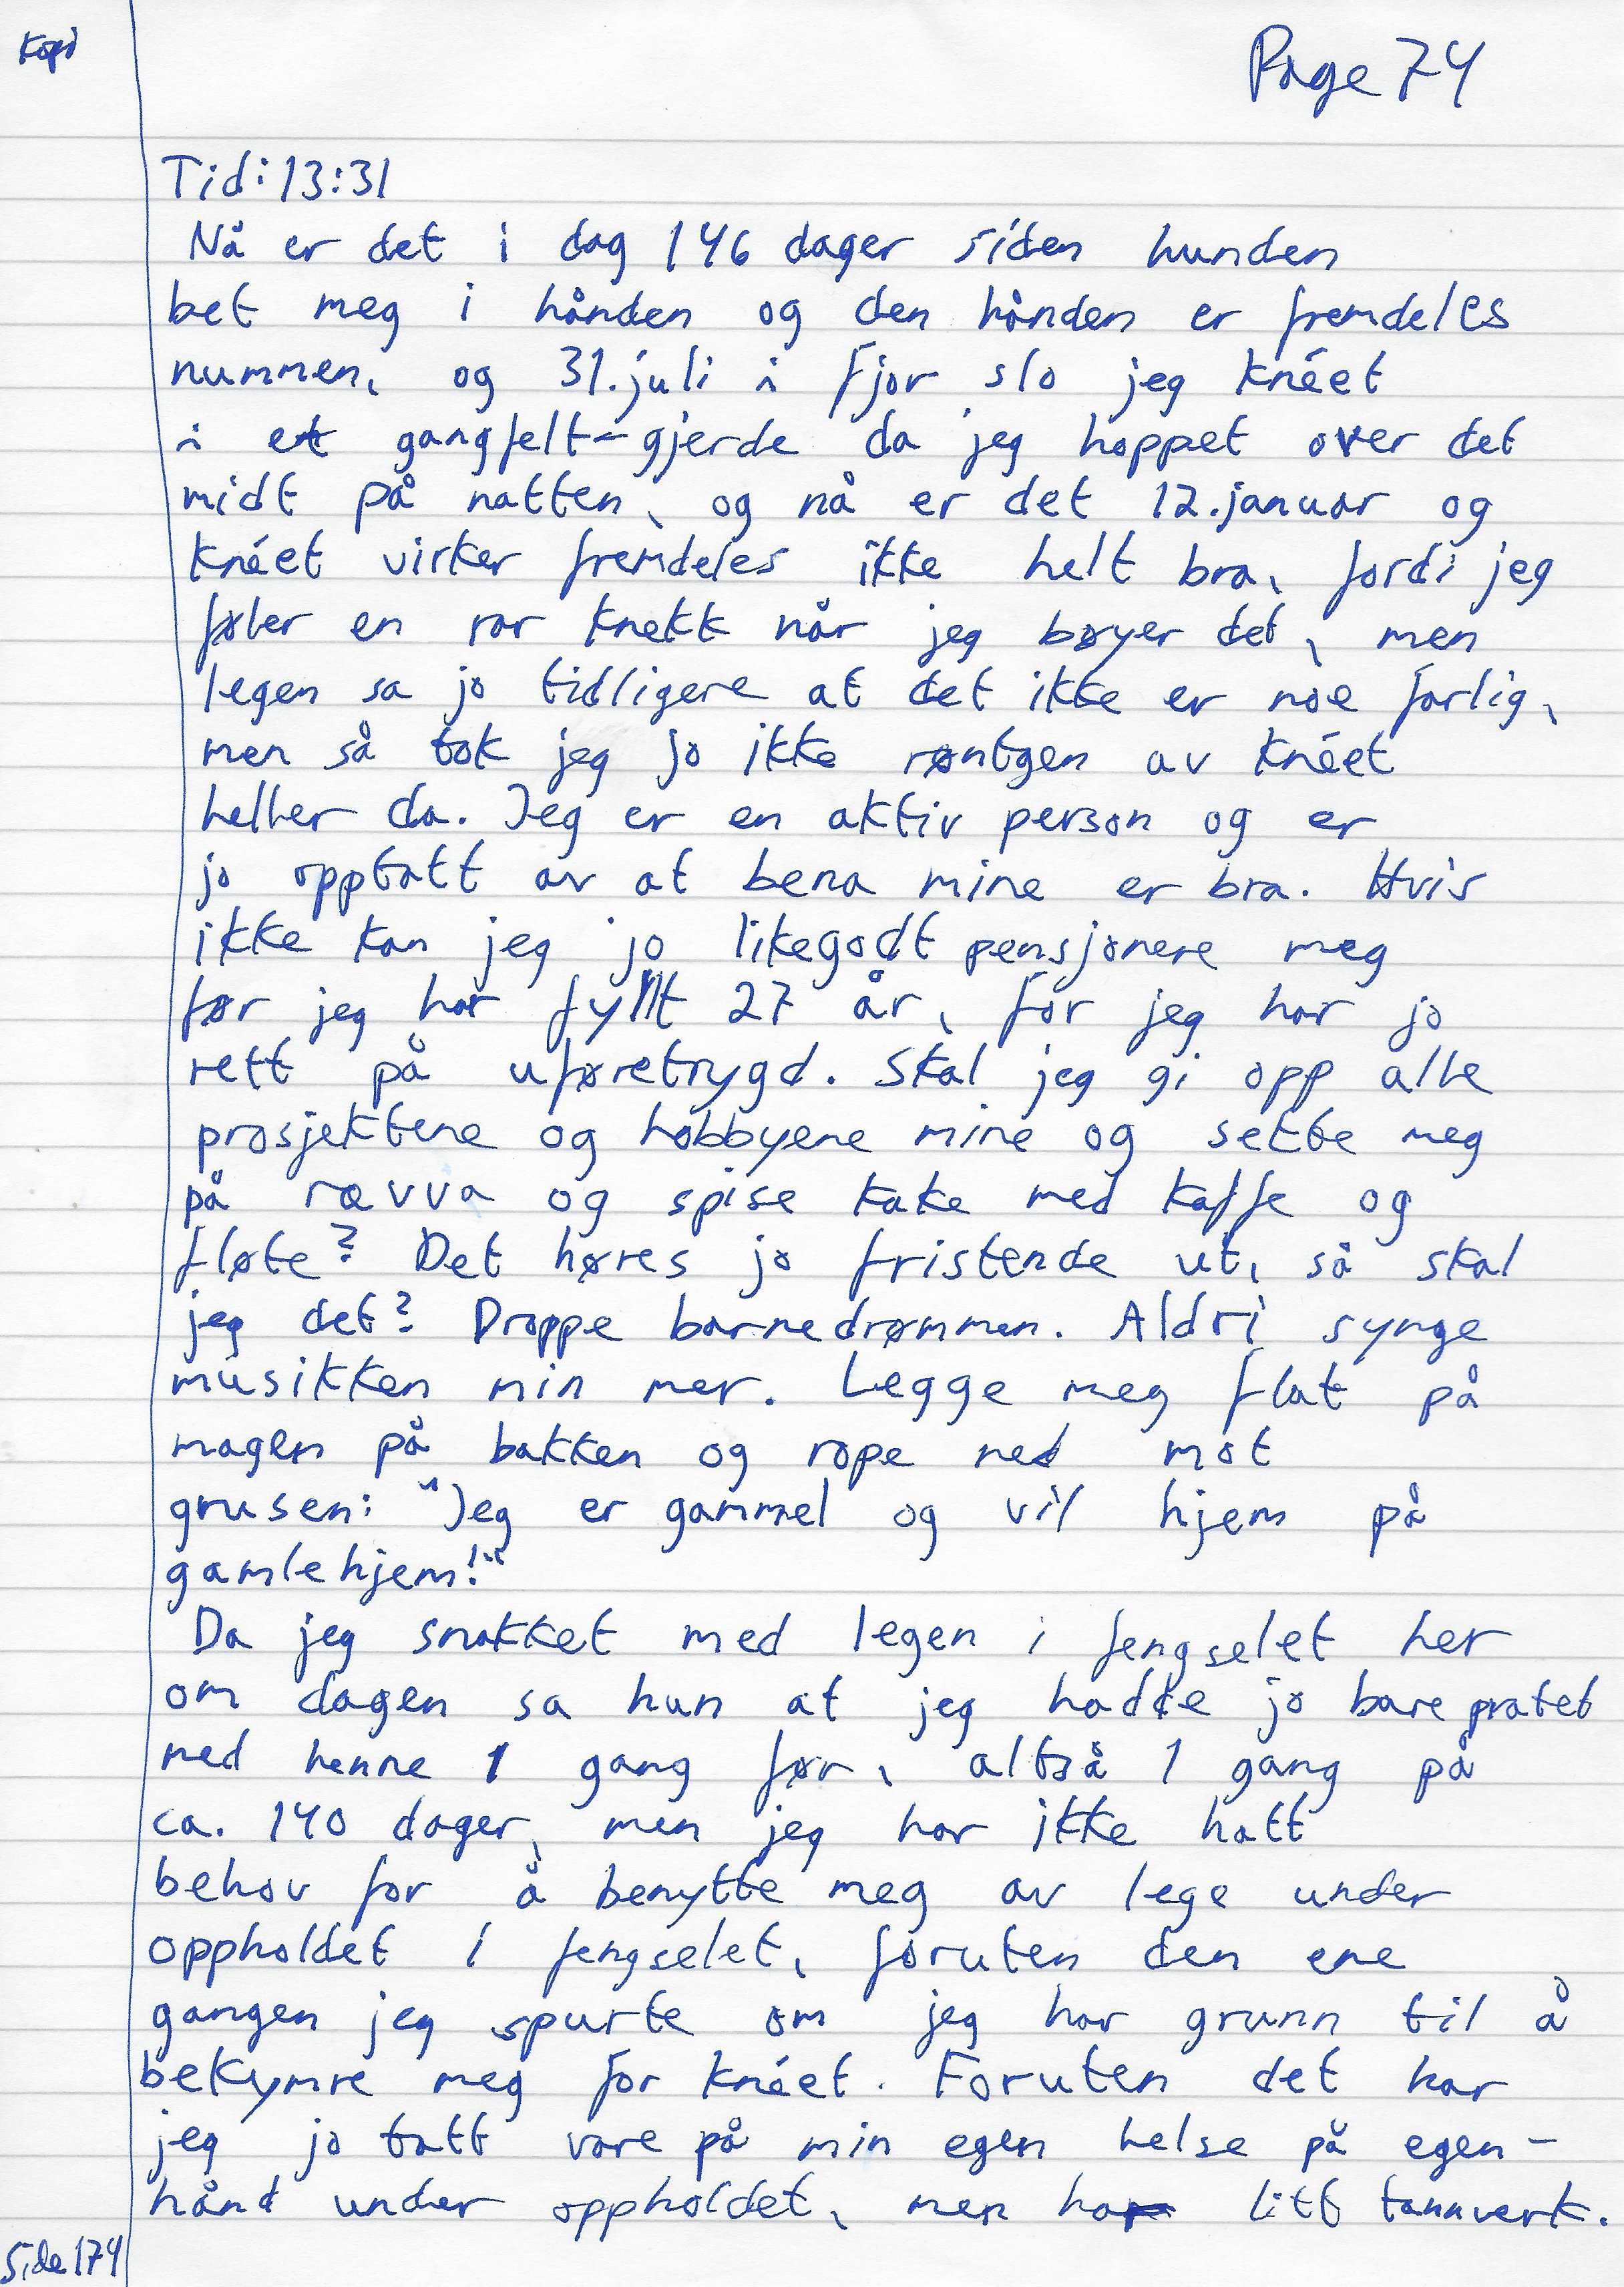 Kopi
Page 74
Tid: 13:31
Nå er det i dag 146 dager siden hunden
bet meg i hånden og den hånden er fremdeles
nummen, og 31. juli i fjor slo jeg knéet
i et gangfelt-gjerde da jeg hoppet over det
midt på natten, og nå er det 12. januar og
knéet virker fremdeles ikke helt bra, fordi jeg
føler en rar knekk når jeg bøyer det, men
legen sa jo tidligere at det ikke er noe farlig,
men så tok jeg jo ikke røntgen av knéet
heller da. Jeg er en aktiv person og er
jo opptatt av at bena mine er bra. Hvis
ikke kan jeg jo likegodt pensjonere meg
før jeg har fyllt 27 år, for jeg har jo
rett på uføretrygd. Skal jeg gi opp alle
prosjektene og hobbyene mine og sette meg
på rævva og spise kake med kaffe og
fløte? Det høres jo fristende ut, så skal
jeg det? Droppe barnedrømmen. Aldri synge
musikken min mer. Legge meg flat på
magen på bakken og rope ned mot
grusen: "Jeg er gammel og vil hjem på
gamlehjem!"
Da jeg snakket med legen i fengselet her
om dagen sa hun at jeg hadde jo bare pratet
med henne 1 gang før, altså 1 gang på
ca. 140 dager, men jeg har ikke hatt
behov for å benytte meg av lege under
oppholdet i fengselet, foruten den ene
gangen jeg spurte om jeg har grunn til å
bekymre meg for knéet. Foruten det har
jeg jo tatt vare på min egen helse på egen-
hånd under oppholdet, men har litt tannverk.
Side 174